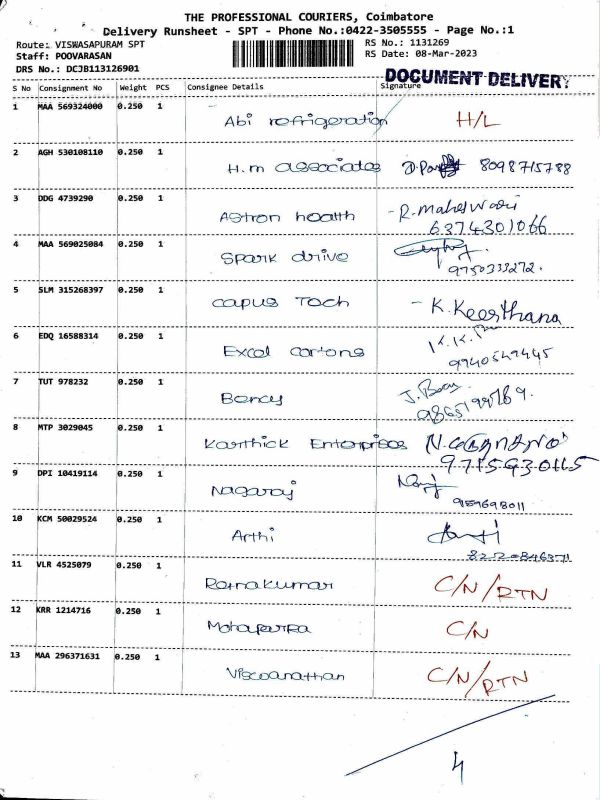 THE PROFESSIONAL COURIERS, Coimbatore
Delivery Runsheet - SPT - Phone No.:0422-3505555 - Page No.:1
Route: VISWASAPURAM SPT
RS No.: 1131269
Staff: POOVARASAN
RS Date: 08-Mar-2023
DRS No.: DCJB113126901
DOCUMENT DELIVERY
S No Consignment No Weight PCS Consignee Details Signature
1 MAA 569324000 0.250 1 Abi refrigeration H/L
2 AGH 530108110 0.250 1 H.m associates 8098715788
3 DDG 4739290 0.250 1 Astron health - R. Maheswari
6374301066
4 MAA 569025084 0.250 1 Spark drive
9750333272.
5 SLM 315268397 0.250 1 capus Tech - K. Keerthana
6 EDQ 16588314 0.250 1 Excel cartons K.K.
9940549445
7 TUT 978232 0.250 1 Bency J.
9865199789.
8 MTP 3029045 0.250 1 Karthick Enterprises
9715930115
9 DPI 10419114 0.250 1 Nagaraj
959698011
10 KCM 50029524 0.250 1 Arthi
11 VLR 4525079 0.250 1 Ramakumar C/N/RTN
12 KRR 1214716 0.250 1 C/N
13 MAA 296371631 0.250 1 Viscoanathan C/N/RTN
4